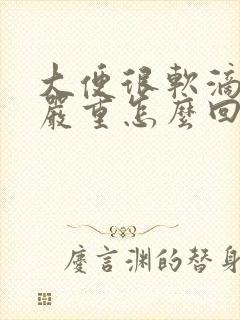 大便很軟滴
嚴重怎麼回
慶言淵的替身